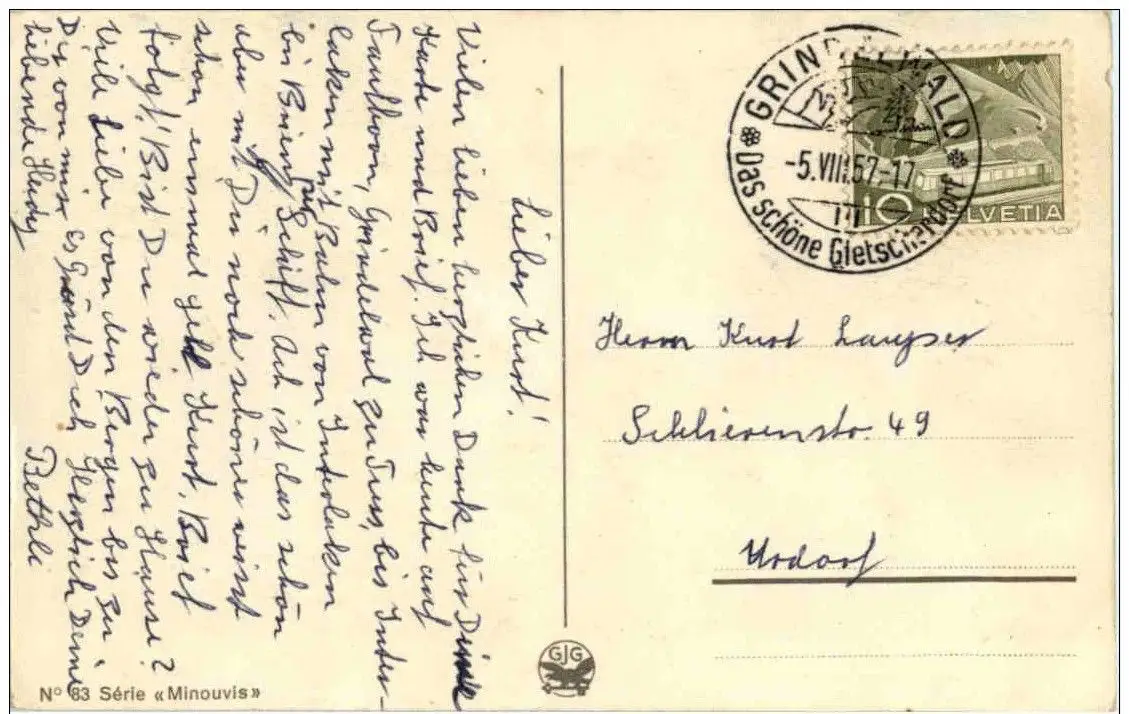 Lieber Kurt!
Vielen lieben herzlichen Dank für Deine
Karte und Brief. Ich war heute auf
Faulhorn, Grindelwal zu Fuss, bis Inter-
laken mit Bahn von Interlaken
bis Brienz per Schiff. Ach ist das schön
aber mit Dir noch schöner weisst
schon einmal gell Kurt. Brief
folgt! Bist Du wieder zu Hause?
Viele Liebe von den Bergen bis zu
Dir von mir es Grüsst Dich Herzlich Deine
liebende Hedy
Bethli
GRINDELWALD
-5.VIII.57-17
Das schöne Gletscherdorf
10 HELVETIA
Herrn Kurt
Schlierenstr. 49
Urdorf
GJG
N° 83 Série «Minouvis»